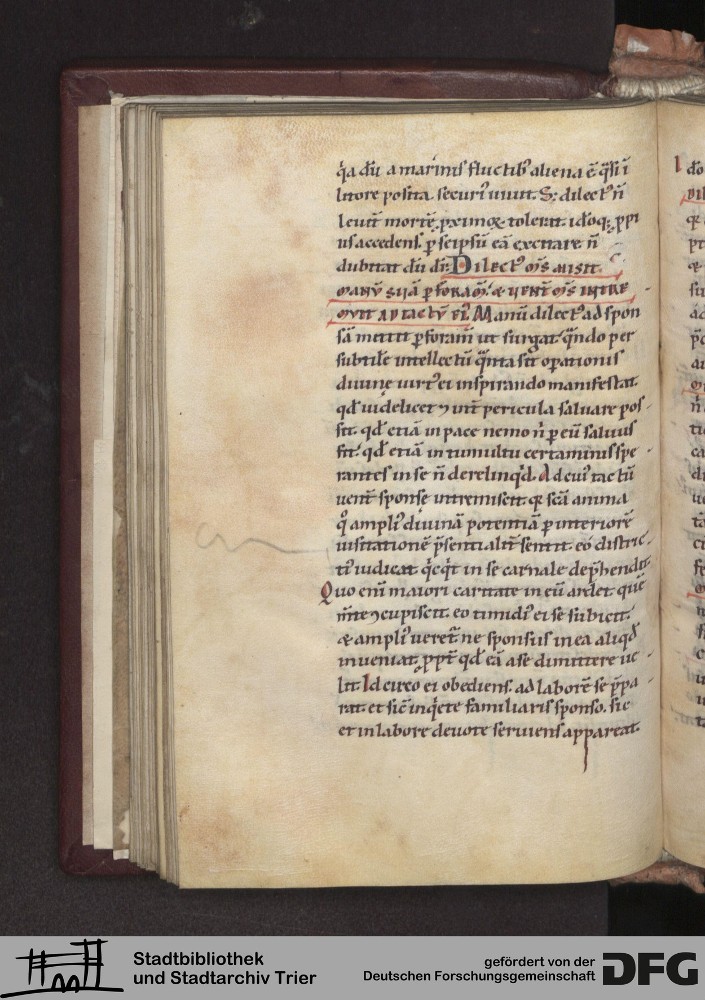 q̾a dū a marinis fluctib᷒ aliena ē q̾si ī
litore posita. securi᷒ uiuit. S; dilect᷒ n̄
leuit̄ mortē proximoq; tolerat. idoq; ppi
us accedens. p seipsū eā excitare n̄
dubitat dū dī. Dilect᷒ m̄s misit
manū suā p foram̄. & uent̄ m̄s intre
muit ad tactū ei᷒. Manū dilect᷒ ad spon
sā mittit p foram̄ ut surgat. q̾ndo per
subtile intellectū q̾nta sit operationis
diuine uirt᷒ ei inspirando manifestat.
qd̄ uidelicet ⁊ int̄ pericula saluare pos
sit. qd̄ etiā in pace nemo n̄ p eū saluus
fit. qd̄ etiā in tumultu certaminis spe
rantes in se n̄ derelinq̾d. Ad cui᷒ tactū
uent̄ sponse intremiscit. q; scā anima
q̾ ampli᷒ diuinā potentiā p interiorē
uisitationē p̄sentialit̄ sentit. eo distric
ti᷒ iudicat q̾cq̾t in se carnale dep̄hendit.
Quo enī maiori caritate in eū ardet. quē
int̄e ⁊cupiscit. eo timidi᷒ ei se subicit.
& ampli᷒ ueret̄ ne sponsus in ea aliqd̄
inueniat. ppt̄ qd̄ eā a se dimittere ue
lit. Idcirco ei obediens. ad laborē se p̄pa
rat. et sic̄ in q̾ete familiaris sponso. sic
et in labore deuote seruiens appareat.
Stadtbibliothek
und Stadtarchiv Trier
gefördert von der
Deutschen Forschungsgemeinschaft
DFG